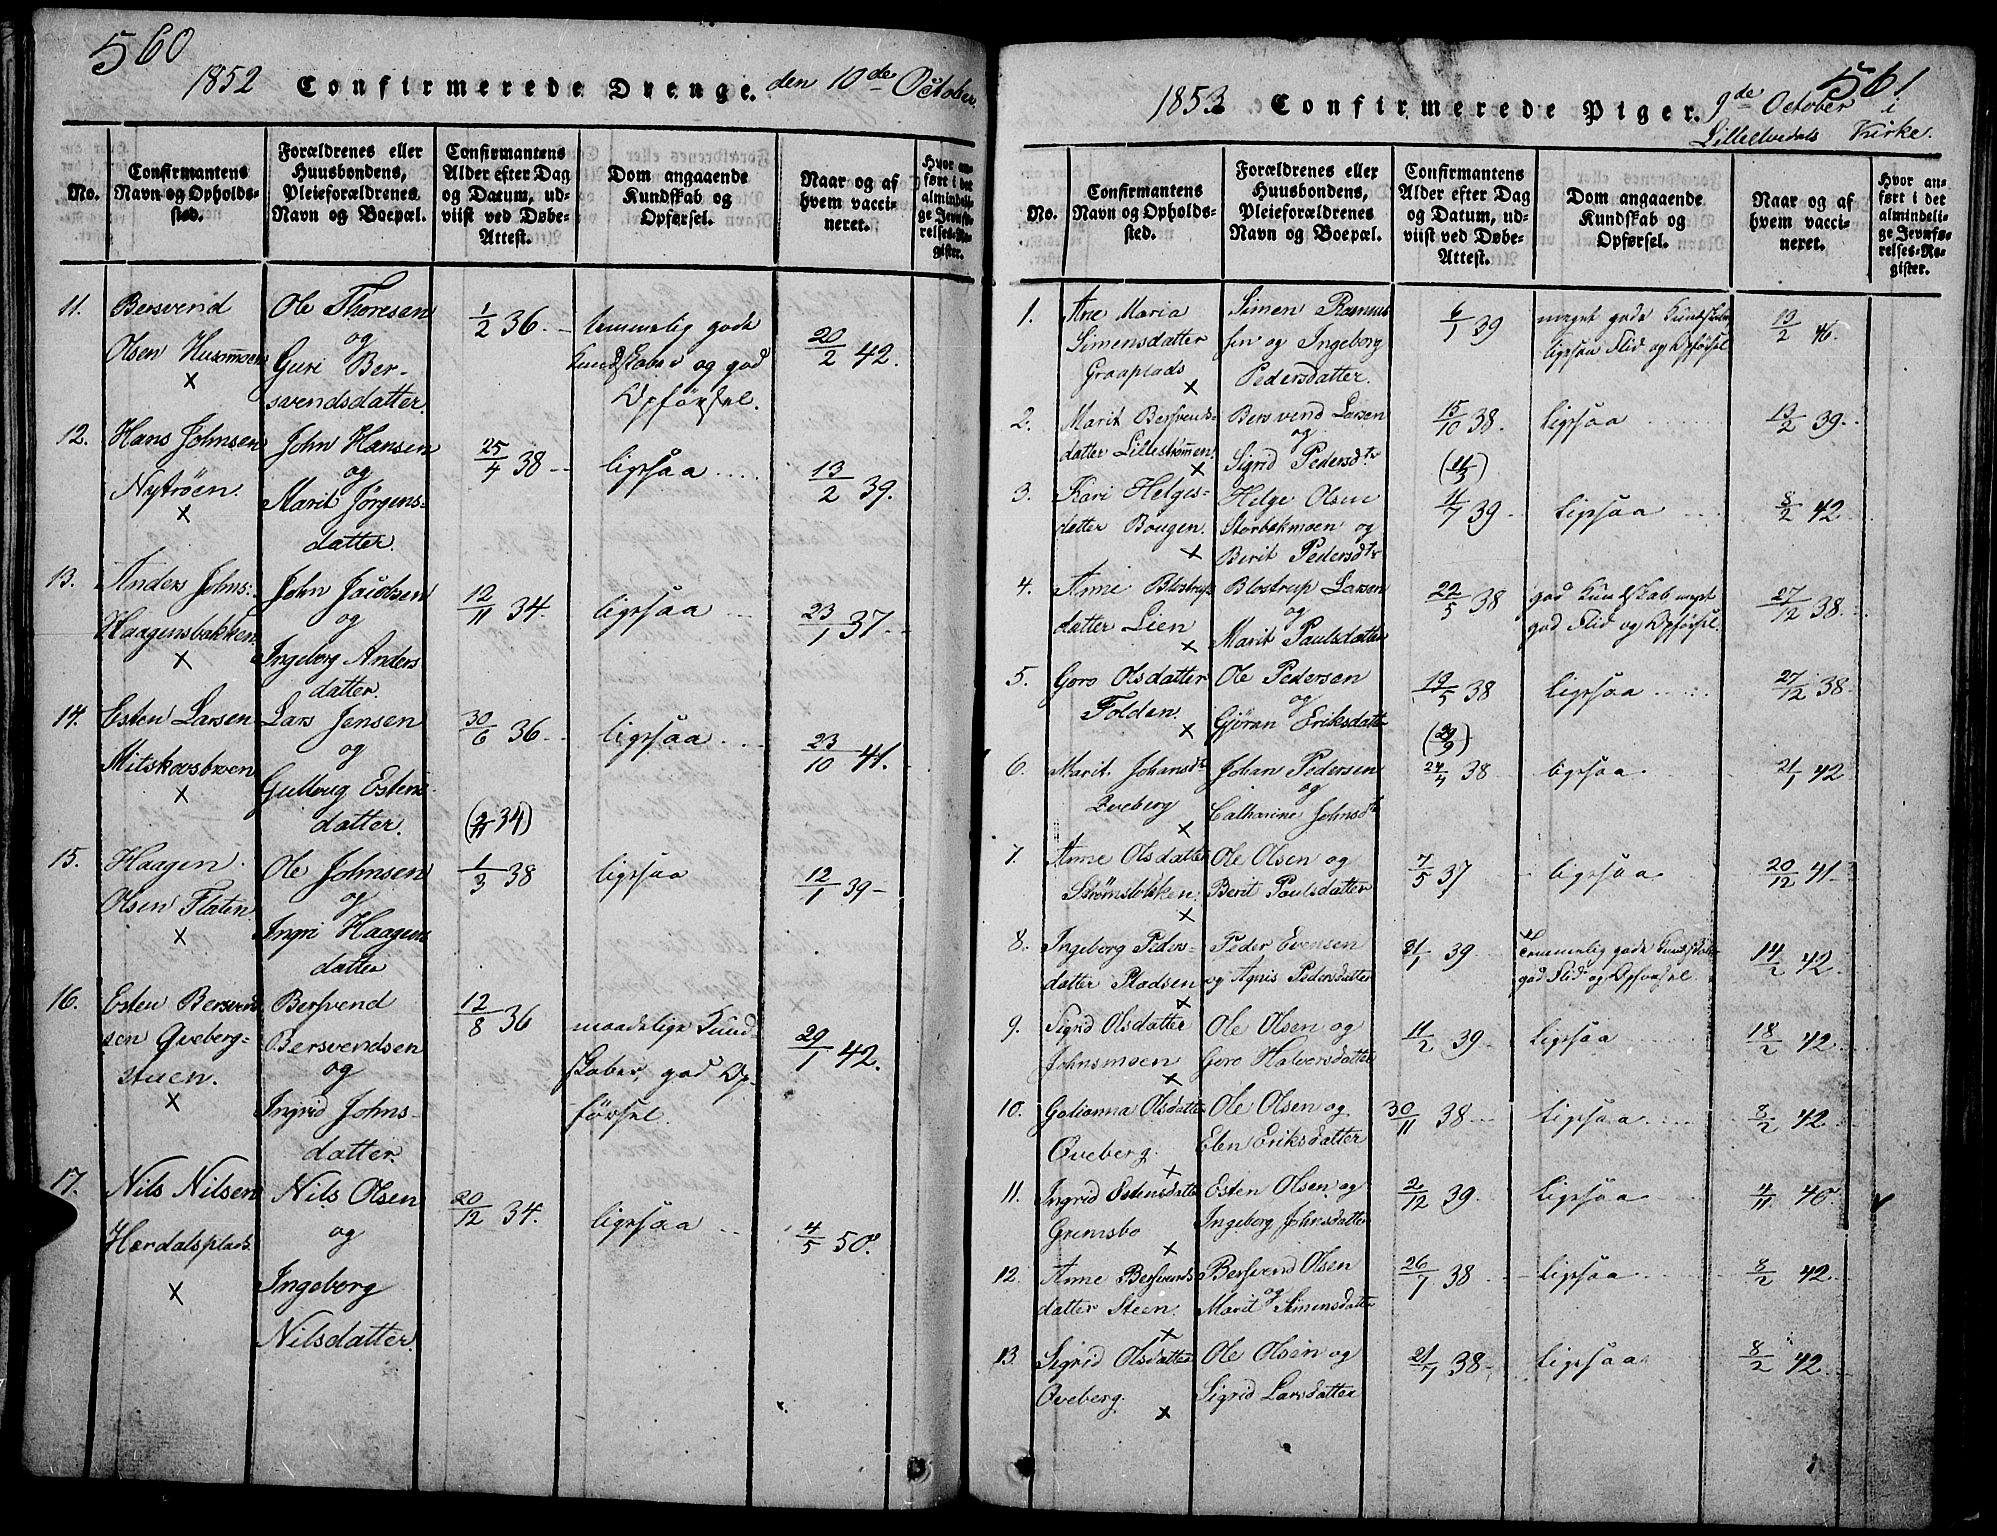 560
1852 Confirmerede Drenge. den 10de October.
No.
Confirmantens
Navn og Opholds-
sted.
Forældrenes eller
Huusbondens,
Pleieforældrenes
Navn og Boepæl.
Confirmantens
Alder efter Dag
og Datum, ud-
viist ved Døbe-
Attest.
Dom angaaende
Kundskab og
Opførsel.
Naar og af
hvem vacci-
neret.
Hvor an-
ført i det
almindeli-
ge Jevnfø-
relses-Re-
gister.
11. Bersvend
Olsen Husomoen
×
Ole Thoresen
og
Guri Ber-
svendsdatter.
1/2 36.
temmelig gode
Kundskaber og god
Opførsel.
20/2 42.
12. Hans Johnsen
Nytrøen.
×
John Hansen
og
Marit Jørgens-
datter.
25/4 38
ligesaa
13/2 39.
13. Anders Johns:
Haagensbakken
×
John Jacobsen
og
Ingeborg Anders
datter.
12/11 34.
ligesaa
23/1 37.
14. Esten Larsen
Mitskovsbroen
×
Lars Jensen
og
Gullaug Estens
datter.
30/6 36
ligesaa
23/10 41.
15. Haagen
Olsen Flaten.
×
Ole Johnsen
og
Ingri Haagens
datter
1/3 38
ligesaa
12/1 39
16. Esten Bersvend
sen Qveberg-
stuen.
×
Bersvend
Bersvendsen
og
Ingrid Johns-
datter.
12/8 36
maadelige Kund-
skaber, god Op-
førsel.
29/1 42.
17. Nils Nilsen
Hordalsplads.
×
Nils Olsen
og
Ingeborg
Nilsdatter.
20/12 34.
ligesaa
4/5 50.
561
1853 Confirmerede Piger. 9de October i
Lillelvedals Kirke.
No.
Confirmantens
Navn og Opholds-
sted.
Forældrenes eller
Huusbondens,
Pleieforældrenes
Navn og Boepæl.
Confirmantens
Alder efter Dag
og Datum, ud-
viist ved Døbe-
Attest.
Dom angaaende
Kundskab og
Opførsel.
Naar og af
hvem vacci-
neret.
Hvor an-
ført i det
almindeli-
ge Jevnfø-
relses-Re-
gister.
1. Ane Maria
Simensdatter
Graaplads
×
Simen Rasmus
sen og Ingeborg
Pedersdatter.
6/1 39
meget gode Kundskaber
ligesaa Flid og Opførsel
19/2 46.
2. Marit Bersvends-
datter Lillestrømmen.
×
Bersvend Larsen
og
Sigrid Pedersdtr
15/10 38.
ligesaa
13/2 39.
3. Kari Helges-
datter Bougen.
×
Helge Olsen
Storbekmoen og
Berit Pedersdtr
11/7 39
ligesaa
8/2 42
4. Anne Blostrup
datter Lien
×
Blostrup Larsen
og
Marit Paulsdatter
22/5 38
god Kundskab meget
god Flid og Opførsel.
27/12 38.
5. Goro Olsdatter
Folden.
×
Ole Pedersen
og
Gjøran Eriksdatter
19/5 38
ligesaa
27/12 38.
6. Marit Johansdtr
Qveberg
×
Johan Pedersen
og
Catharine Johnsdtr
24/4 38
ligesaa.
21/1 42
7. Anne Olsdatter
Strømsbakken.
×
Ole Olsen og
Berit Paulsdatter
7/5 37
ligesaa
20/12 41
8. Ingeborg Peders-
datter Pladsen
×
Peder Evensen
og Agnis Pedersdatter
31/1 39
Temmelig gode Kundskaber
god Flid og Opførsel.
14/2 42.
9. Sigrid Olsdatter
Johnsmoen
×
Ole Olsen og
Goro Halvorsdatter
11/2 39
ligesaa
18/2 42.
10. Golianna Olsdatter
Qveberg.
×
Ole Olsen og
Elen Eriksdatter
30/11 38
ligesaa
8/2 42
11. Ingrid Estensdatter
Grimsbo
×
Esten Olsen og
Ingeborg Johnsdatter
2/12 39.
ligesaa
4/11 40.
12. Anne Bersvends
datter Steen.
×
Bersvend Olsen
og
Marit Simensdatter
26/7 38
ligesaa
8/2 42
13. Sigrid Olsdatter
Qveberg.
×
Ole Olsen og
Sigrid Larsdatter
21/7 38
ligesaa
8/2 42